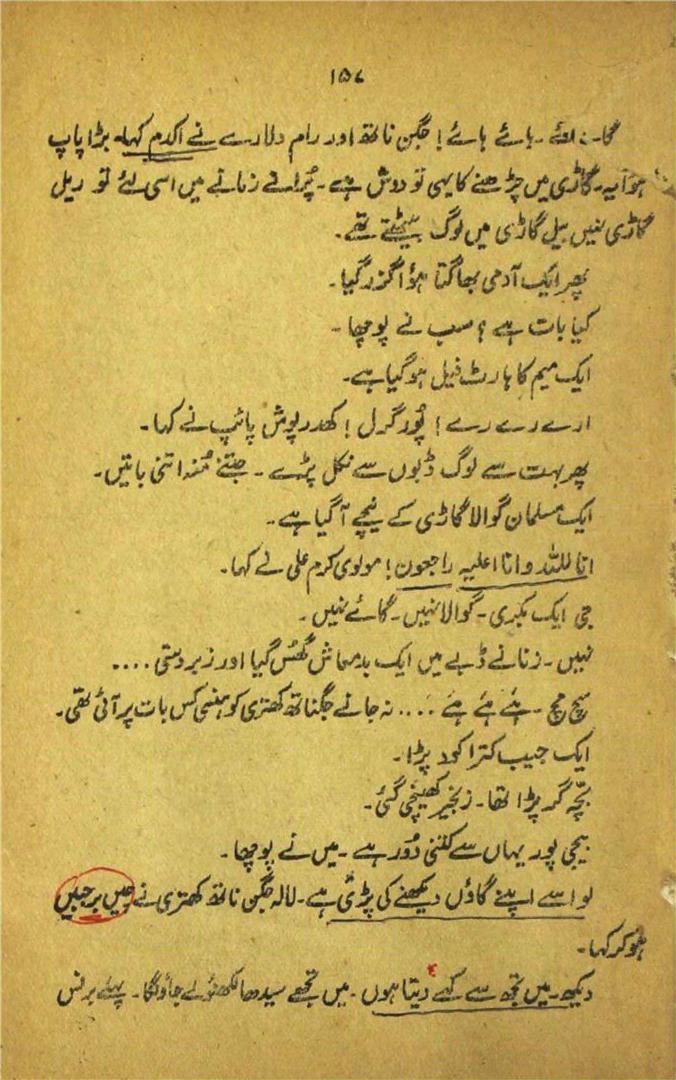 ۱۵۷
گائے۔ ہائے ہائے! جگن ناتھ اور رام دلارے نے اکدم کہا۔ بڑا پاپ
ہوا یہ۔ گاڑی میں چڑھنے کا یہی تو دوش ہے۔ پُرانے زمانے میں اسی لئے تو ریل
گاڑی نہیں بیل گاڑی میں لوگ بیٹھتے تھے۔
پھر ایک آدمی بھاگتا ہؤا گزر گیا۔
کیا بات ہے؟ سب نے پوچھا۔
ایک میم کا ہارٹ فیل ہو گیا ہے۔
ارے رے رے! پُور گرل! کھدر پوش پائپ نے کہا۔
پھر بہت سے لوگ ڈبوں سے نکل پڑے۔ جتنے مُنہ اتنی باتیں۔
ایک مسلمان گوالا گاڑی کے نیچے آ گیا ہے۔
انا للہ و انا اعلیہ راجعون! مولوی کرم علی نے کہا۔
جی ایک بکری۔ گوالا نہیں۔ گائے نہیں۔
نہیں۔ زنانے ڈبے میں ایک بدمعاش گھُس گیا اور زبردستی ....
سچ مچ۔ ہئے ہئے ہئے .... نہ جانے جگناتھ کھتری کو ہنسی کس بات پر آئی تھی۔
ایک جیب کترا کود پڑا۔
بچّہ گر پڑا تھا۔ زنجیر کھینچی گئی۔
بیجی پور یہاں سے کتنی دُور ہے۔ میں نے پوچھا۔
لو اسے اپنے گاؤں دیکھنے کی پڑی ہے۔ لالہ جگن ناتھ کھتری نے چیں بر جبیں
ہو کر کہا۔
دیکھ۔ میں تجھ سے کہے دیتا ہوں۔ میں تجھے سیدھا لکھنؤ لے جاؤنگا۔ پہلے برنس